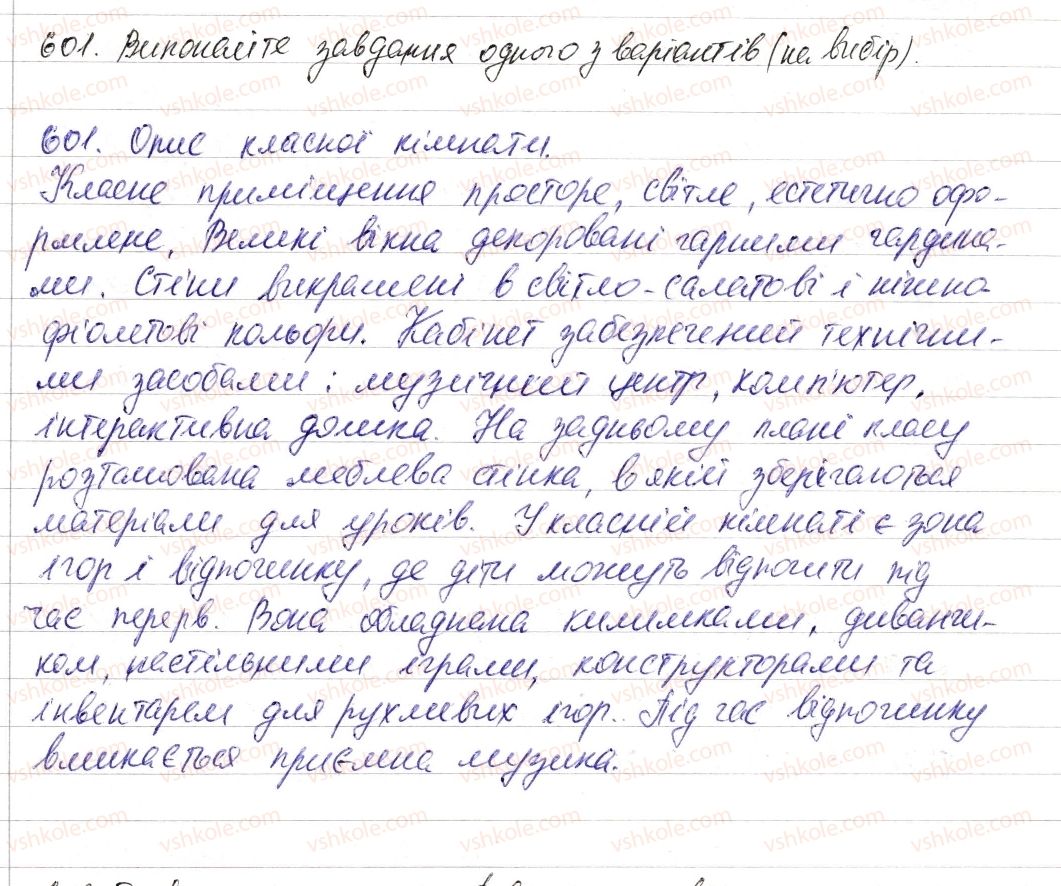 601. Виконайте завдання одного з варіантів (на вибір).
601. Опис класної кімнати.
Класне приміщення просторе, світле, естетично офо-
рмлене. Великі вікна декоровані гарними гардина-
ми. Стіни викрашені в світло-салатові і ніжно-
фіолетові кольори. Кабінет забезпечений технічни-
ми засобами: музичний центр, комп'ютер,
інтерактивна дошка. На задньому плані класу
розташована меблева стінка, в якій зберігаються
матеріали для уроків. У класній кімнаті є зона
ігор і відпочинку, де діти можуть відпочити під
час перерв. Вона обладнена килимками, диванчи-
ком, настільними іграми, конструкторами та
інвентарем для рухливих ігор. Під час відпочинку
вмикається приємна музика.